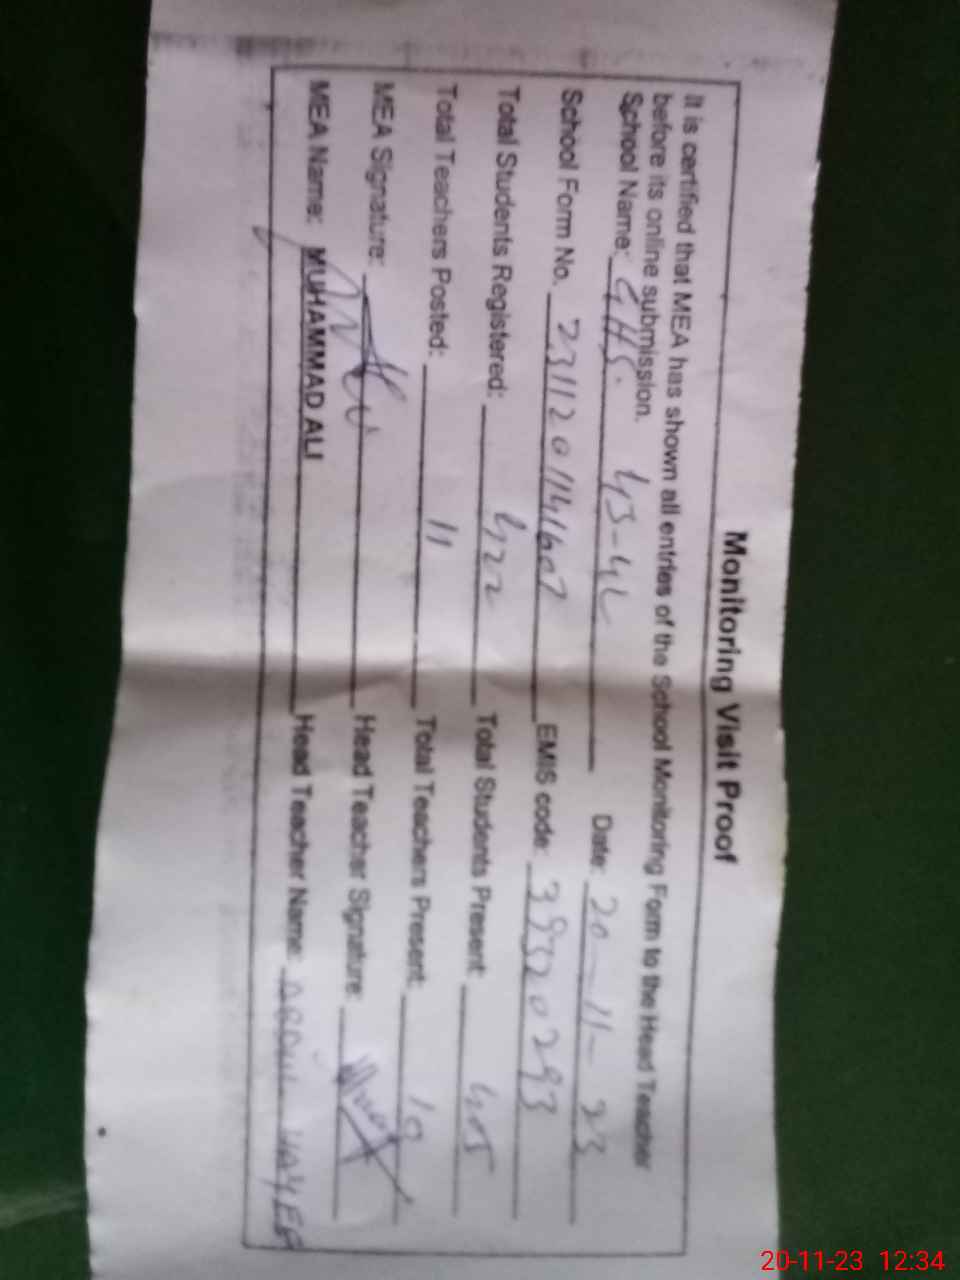 Monitoring Visit Proof
It is certified that MEA has shown all entries of the School Monitoring Form to the Head Teacher
before its online submission.
School Name: GHS. 43-4L Date: 20-11-23
School Form No. 2311201141607 EMIS code: 39320293
Total Students Registered: 422 Total Students Present: 405
Total Teachers Posted: 11 Total Teachers Present: 10
MEA Signature: Head Teacher Signature:
MEA Name: MUHAMMAD ALI Head Teacher Name: ABDUL
20-11-23 12:34